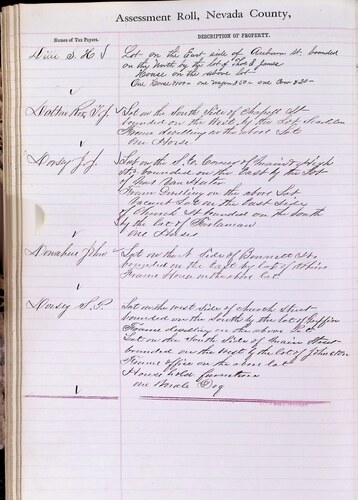 Assessment Roll, Nevada County,
Names of Tax Payers.
DESCRIPTION OF PROPERTY.
S. H
Lot on the East side of Auburn St. bounded
on the North by the lot of Thos S Jones
House on the above lot
One Horse $100— one wagon $50— one Cow $20—
Lot on the South Side of St
bounded on the West by the Lot
Frame dwelling on the above Lot
one Horse
Dorsey J. J.
Lot on the S. E. Corner of Main & High
Sts bounded on the East by the Lot
of
Frame Dwelling on the above Lot
Vacant Lot on the East Side
of Church St bounded on the South
by the lot of
one Horse
Donahue John
Lot on the N Side of Bennett St
bounded on the East by lot of
Frame House on the above lot
Dorsey S. P.
Lot on the West side of Church Street
bounded on the South by the lot of Griffin
Frame dwelling on the above Lot
Lot on the South Side of Main Street
bounded on the West by the lot of Johnston
Frame office on the above lot
House hold furniture
one Dog